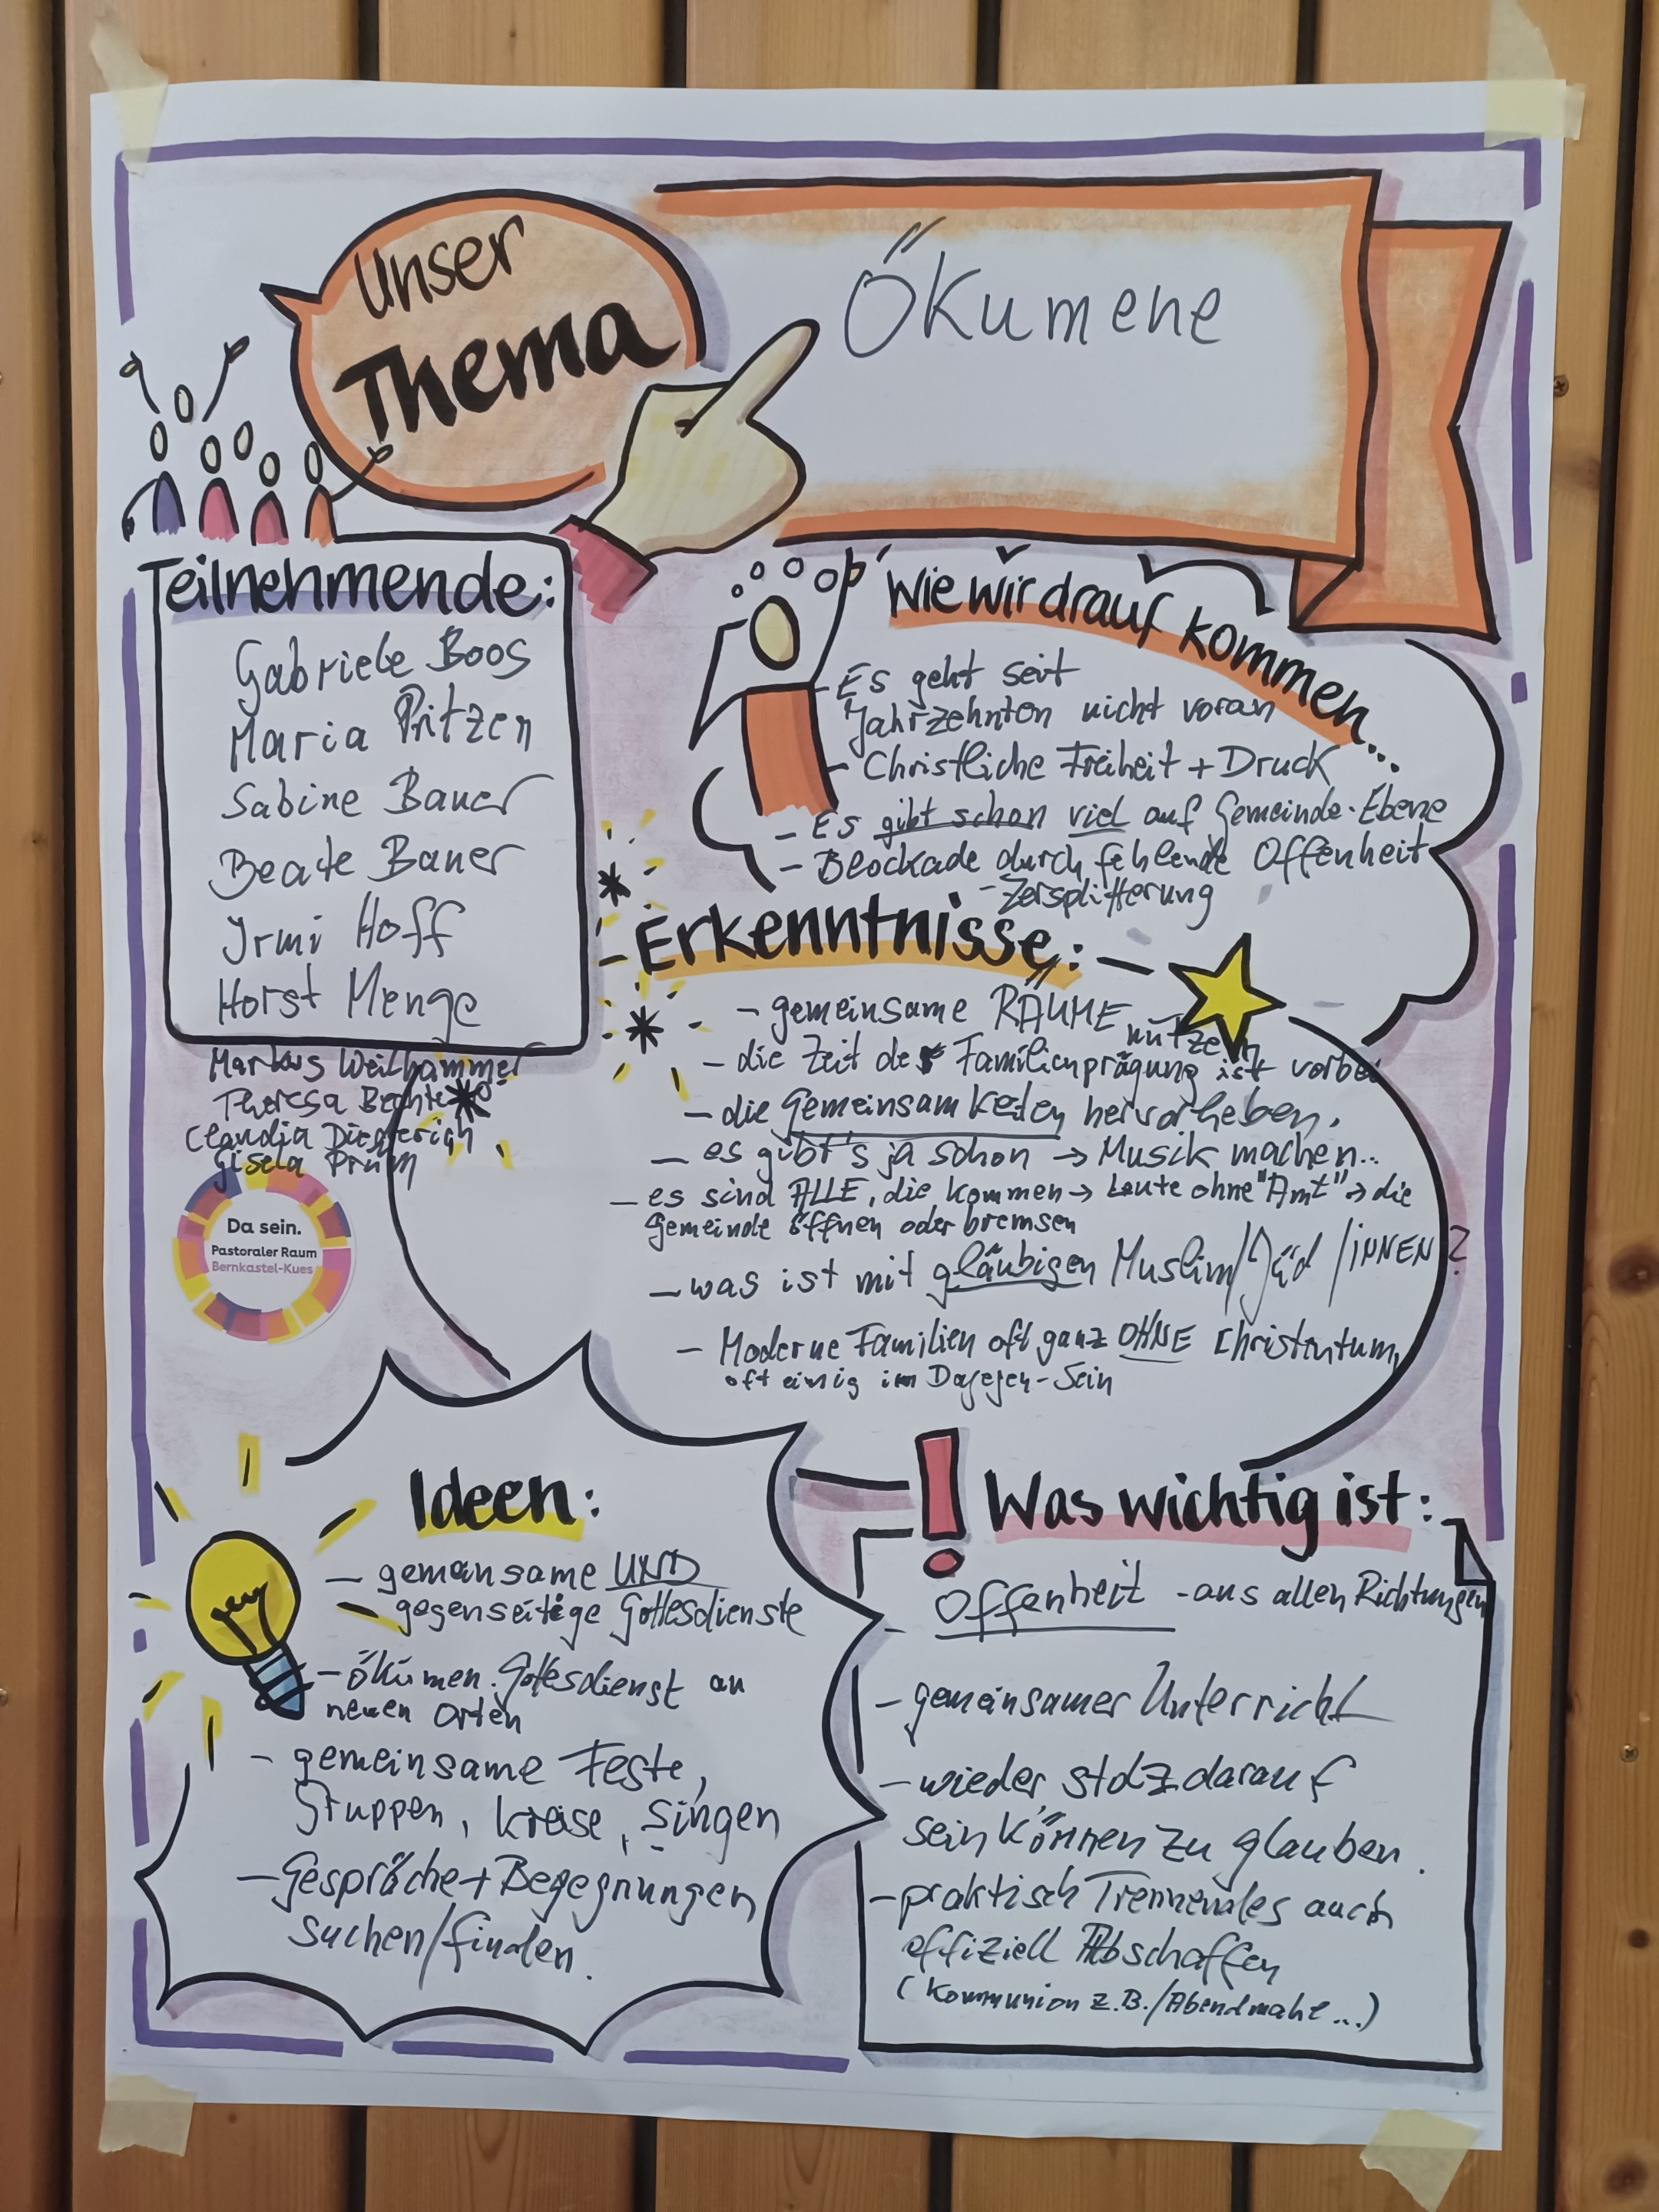 Unser
Thema
Ökumene
Teilnehmende:
Gabriele Boos
Maria Pritzen
Sabine Bauer
Beate Bauer
Irmi Hoff
Horst Menge
Markus Weilhammer
Theresa
Claudia Diederich
Gisela Prüm
Da sein.
Pastoraler Raum
Bernkastel-Kues
Wie wir drauf kommen...
- Es geht seit
Jahrzehnten nicht voran
- Christliche Freiheit + Druck
- Es gibt schon viel auf Gemeinde-Ebene
- Blockade durch fehlende Offenheit
- Zersplitterung
Erkenntnisse:
- gemeinsame RÄUME nutzen
- die Zeit der Familienprägung ist vorbei
- die Gemeinsamkeiten hervorheben.
- es gibt's ja schon → Musik machen...
- es sind ALLE, die kommen → Leute ohne "Amt" → die
Gemeinde öffnen oder bremsen
- was ist mit gläubigen Muslim/Jüd/INNEN?
- Moderne Familien oft ganz OHNE Christentum,
oft einig im Dagegen-Sein
Ideen:
- gemeinsame UND
gegenseitige Gottesdienste
- ökumen. Gottesdienst an
neuen Orten
- gemeinsame Feste,
Gruppen, Kreise, Singen
- Gespräche + Begegnungen
suchen/finden.
Was wichtig ist:
- Offenheit - aus allen Richtungen
- gemeinsamer Unterricht
- wieder stolz darauf
sein können zu glauben.
- praktisch Trennendes auch
offiziell Abschaffen
(Kommunion z.B./Abendmahl...)